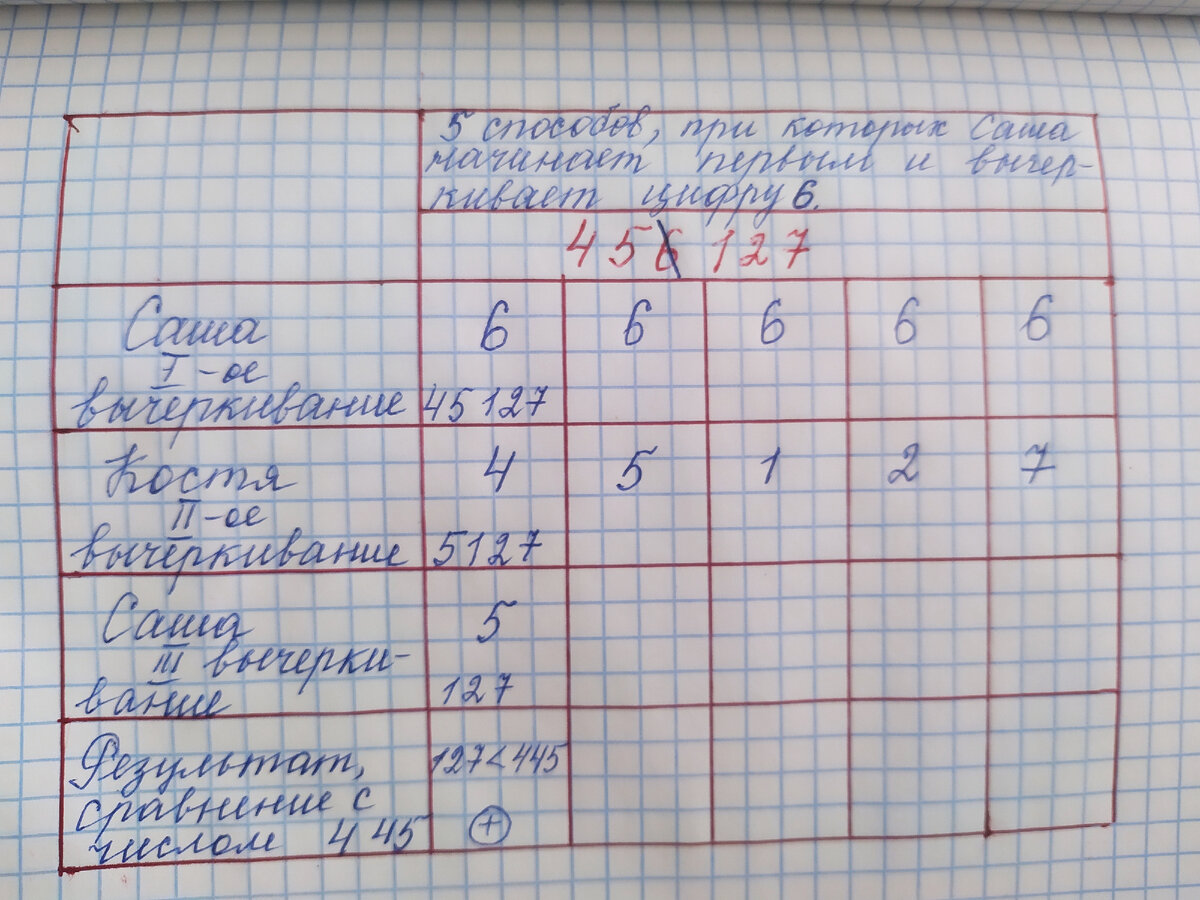 5 способов, при которых Саша
начинает первым и вычер-
кивает цифру 6.
456127
Саша 6 6 6 6 6
I-ое
вычеркивание 45127
Костя 4 5 1 2 7
II-ое
вычеркивание 5127
Саша 5
III вычерки-
вание 127
Результат, 127<445
сравнение с
числом 445 +